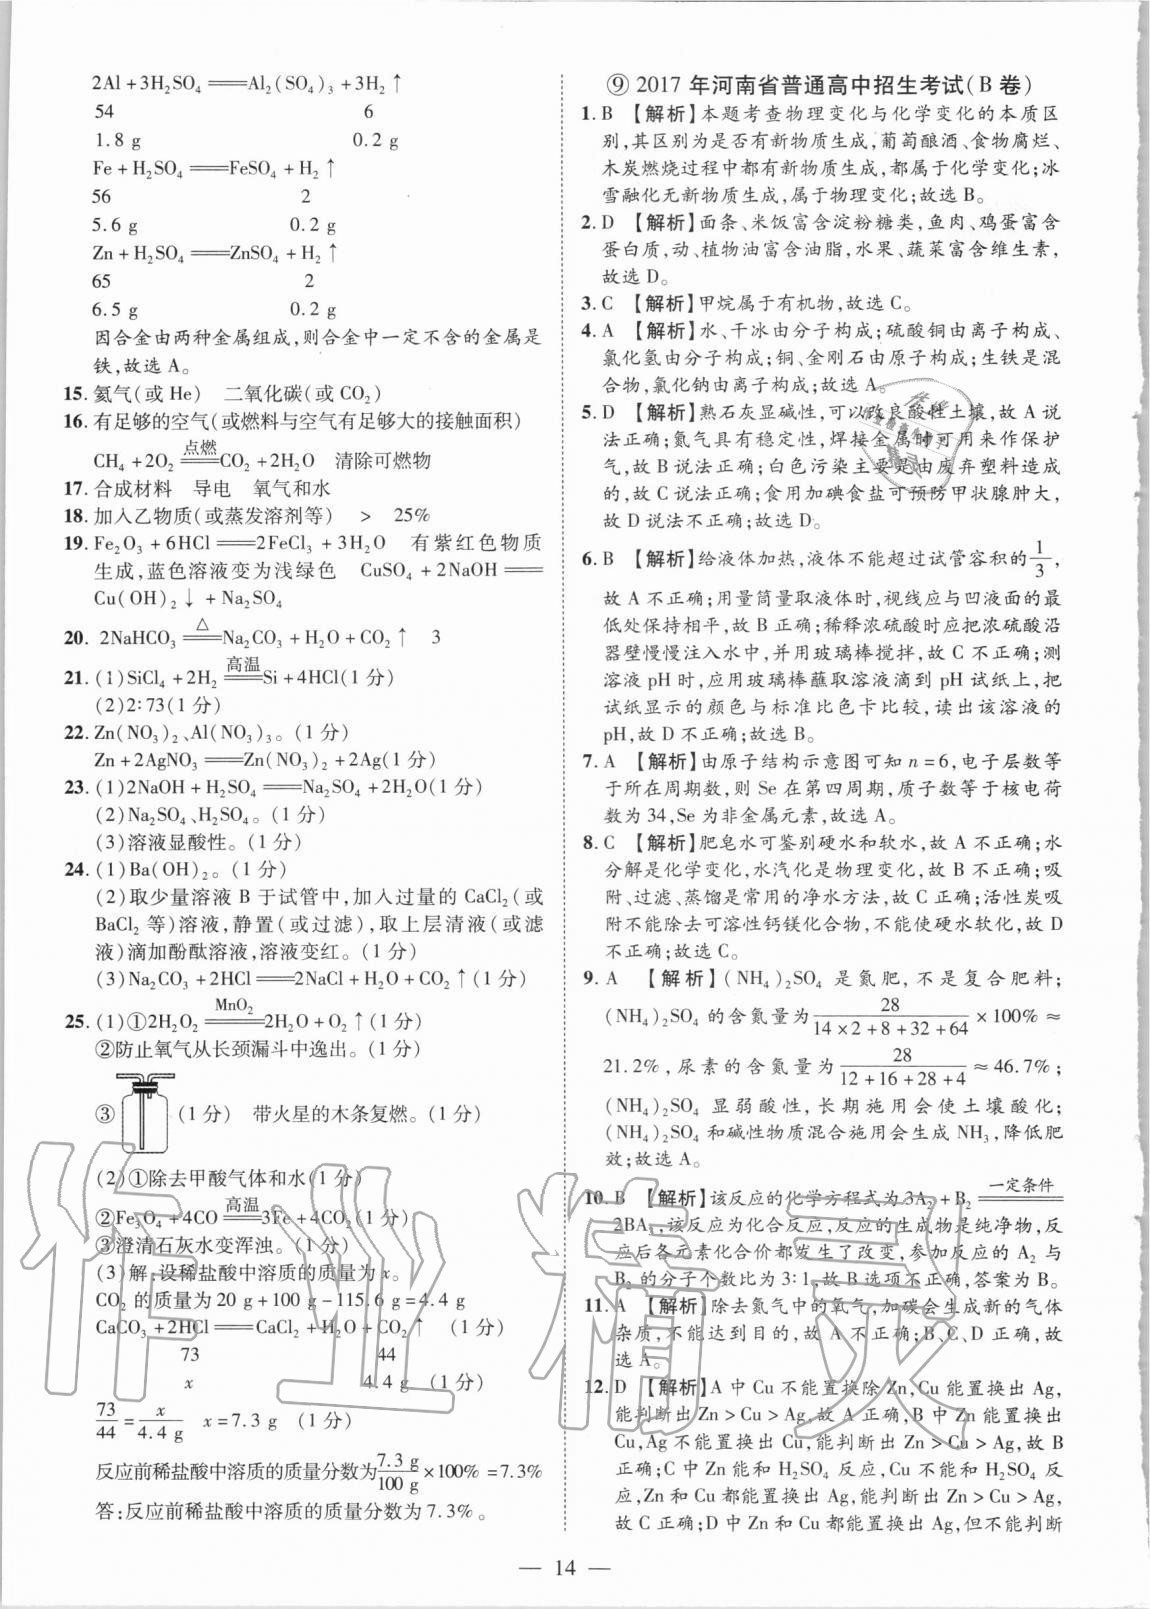 2Al+3H₂SO₄══Al₂(SO₄)₃+3H₂↑
54 6
1.8 g 0.2 g
Fe+H₂SO₄══FeSO₄+H₂↑
56 2
5.6 g 0.2 g
Zn+H₂SO₄══ZnSO₄+H₂↑
65 2
6.5 g 0.2 g
因合金由两种金属组成,则合金中一定不含的金属是
铁,故选A。
15. 氦气(或He) 二氧化碳(或CO₂)
16. 有足够的空气(或燃料与空气有足够大的接触面积)
点燃
CH₄+2O₂══CO₂+2H₂O 清除可燃物
17. 合成材料 导电 氧气和水
18. 加入乙物质(或蒸发溶剂等) > 25%
19. Fe₂O₃+6HCl══2FeCl₃+3H₂O 有紫红色物质
生成,蓝色溶液变为浅绿色 CuSO₄+2NaOH══
Cu(OH)₂↓+Na₂SO₄
△
20. 2NaHCO₃══Na₂CO₃+H₂O+CO₂↑ 3
高温
21. (1)SiCl₄+2H₂══Si+4HCl(1分)
(2)2∶73(1分)
22. Zn(NO₃)₂、Al(NO₃)₃。(1分)
Zn+2AgNO₃══Zn(NO₃)₂+2Ag(1分)
23. (1)2NaOH+H₂SO₄══Na₂SO₄+2H₂O(1分)
(2)Na₂SO₄、H₂SO₄。(1分)
(3)溶液显酸性。(1分)
24. (1)Ba(OH)₂。(1分)
(2)取少量溶液B于试管中,加入过量的CaCl₂(或
BaCl₂等)溶液,静置(或过滤),取上层清液(或滤
液)滴加酚酞溶液,溶液变红。(1分)
(3)Na₂CO₃+2HCl══2NaCl+H₂O+CO₂↑(1分)
MnO₂
25. (1)①2H₂O₂══2H₂O+O₂↑(1分)
②防止氧气从长颈漏斗中逸出。(1分)
③ (1分) 带火星的木条复燃。(1分)
(2)①除去甲酸气体和水(1分)
高温
②Fe₃O₄+4CO══3Fe+4CO₂(1分)
③澄清石灰水变浑浊。(1分)
(3)解:设稀盐酸中溶质的质量为x。
CO₂的质量为20 g+100 g-115.6 g=4.4 g
CaCO₃+2HCl══CaCl₂+H₂O+CO₂↑ (1分)
73 44
x 4.4 g (1分)
73/44=x/4.4 g x=7.3 g (1分)
反应前稀盐酸中溶质的质量分数为7.3 g/100 g×100%=7.3%
答:反应前稀盐酸中溶质的质量分数为7.3%。
⑨ 2017年河南省普通高中招生考试(B卷)
1. B 【解析】本题考查物理变化与化学变化的本质区
别,其区别为是否有新物质生成,葡萄酿酒、食物腐烂、
木炭燃烧过程中都有新物质生成,都属于化学变化;冰
雪融化无新物质生成,属于物理变化;故选B。
2. D 【解析】面条、米饭富含淀粉糖类,鱼肉、鸡蛋富含
蛋白质,动、植物油富含油脂,水果、蔬菜富含维生素,
故选D。
3. C 【解析】甲烷属于有机物,故选C。
4. A 【解析】水、干冰由分子构成;硫酸铜由离子构成、
氯化氢由分子构成;铜、金刚石由原子构成;生铁是混
合物,氯化钠由离子构成;故选A。
5. D 【解析】熟石灰显碱性,可以改良酸性土壤,故A说
法正确;氮气具有稳定性,焊接金属时可用来作保护
气,故B说法正确;白色污染主要是由废弃塑料造成
的,故C说法正确;食用加碘食盐可预防甲状腺肿大,
故D说法不正确;故选D。
6. B 【解析】给液体加热,液体不能超过试管容积的1/3,
故A不正确;用量筒量取液体时,视线应与凹液面的最
低处保持相平,故B正确;稀释浓硫酸时应把浓硫酸沿
器壁慢慢注入水中,并用玻璃棒搅拌,故C不正确;测
溶液pH时,应用玻璃棒蘸取溶液滴到pH试纸上,把
试纸显示的颜色与标准比色卡比较,读出该溶液的
pH,故D不正确;故选B。
7. A 【解析】由原子结构示意图可知n=6,电子层数等
于所在周期数,则Se在第四周期,质子数等于核电荷
数为34,Se为非金属元素,故选A。
8. C 【解析】肥皂水可鉴别硬水和软水,故A不正确;水
分解是化学变化,水汽化是物理变化,故B不正确;吸
附、过滤、蒸馏是常用的净水方法,故C正确;活性炭吸
附不能除去可溶性钙镁化合物,不能使硬水软化,故D
不正确;故选C。
9. A 【解析】(NH₄)₂SO₄是氮肥,不是复合肥料;
(NH₄)₂SO₄的含氮量为28/(14×2+8+32+64)×100%≈
21.2%,尿素的含氮量为28/(12+16+28+4)≈46.7%;
(NH₄)₂SO₄显弱酸性,长期施用会使土壤酸化;
(NH₄)₂SO₄和碱性物质混合施用会生成NH₃,降低肥
效;故选A。
一定条件
10. B 【解析】该反应的化学方程式为3A₂+B₂══
2BA₃,该反应为化合反应,反应的生成物是纯净物,反
应后各元素化合价都发生了改变,参加反应的A₂与
B₂的分子个数比为3∶1,故B选项不正确,答案为B。
11. A 【解析】除去氮气中的氧气,加碳会生成新的气体
杂质,不能达到目的,故A不正确;B、C、D正确,故
选A。
12. D 【解析】A中Cu不能置换除Zn,Cu能置换出Ag,
能判断出Zn>Cu>Ag,故A正确,B中Zn能置换出
Cu,Ag不能置换出Cu,能判断出Zn>Cu>Ag,故B
正确;C中Zn能和H₂SO₄反应,Cu不能和H₂SO₄反
应,Zn和Cu都能置换出Ag,能判断出Zn>Cu>Ag,
故C正确;D中Zn和Cu都能置换出Ag,但不能判断
— 14 —
作业精灵